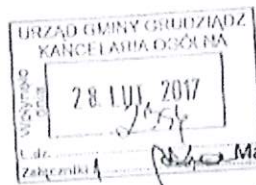 URZĄD GMINY GRUDZIĄDZ
KANCELARIA OGÓLNA
Wpłynęło
dnia
28. LUT. 2017
L.dz.
Załączniki
Ma